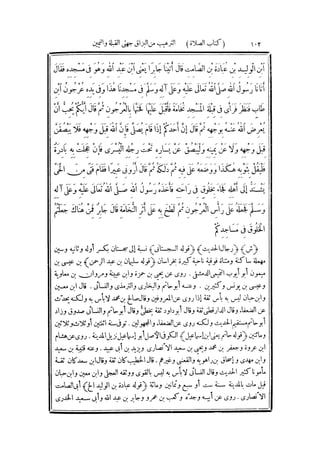 ١٠٢ (كتاب الصلاة) الترهيب من البزاق جهتى القبلة واليمين
ابْنِ الْوَلِيدِ بْنِ عُبَادَةَ بْنِ الصَّامِتِ قَالَ أَتَيْنَا جَابِرًا يَعْنِى ابْنَ عَبْدِ اللَّهِ وَهُوَ فِى مَسْجِدِهِ فَقَالَ
أَتَانَا رَسُولُ اللَّهِ صَلَّى اللَّهُ تَعَالَى عَلَيْهِ وَعَلَى آلِهِ وَسَلَّمَ فِى مَسْجِدِنَا هَذَا وَفِى يَدِهِ عُرْجُونُ ابْنِ
طَابٍ فَنَظَرَ فَرَأَى فِى قِبْلَةِ الْمَسْجِدِ نُخَامَةً فَأَقْبَلَ عَلَيْهَا فَحَتَّهَا بِالْعُرْجُونِ ثُمَّ قَالَ أَيُّكُمْ يُحِبُّ أَنْ
يُعْرِضَ اللَّهُ عَنْهُ بِوَجْهِهِ ثُمَّ قَالَ إِنَّ أَحَدَكُمْ إِذَا قَامَ يُصَلِّى فَإِنَّ اللَّهَ قِبَلَ وَجْهِهِ فَلَا يَبْصُقَنَّ
قِبَلَ وَجْهِهِ وَلَا عَنْ يَمِينِهِ وَلْيَبْصُقْ عَنْ يَسَارِهِ تَحْتَ رِجْلِهِ الْيُسْرَى فَإِنْ عَجِلَتْ بِهِ بَادِرَةٌ
فَلْيَقُلْ بِثَوْبِهِ هَكَذَا وَوَضَعَهُ عَلَى فِيهِ ثُمَّ دَلَكَهُ ثُمَّ قَالَ أَرُونِى عَبِيرًا فَقَامَ فَتًى مِنَ الْحَىِّ
يَشْتَدُّ إِلَى أَهْلِهِ فَجَاءَ بِخَلُوقٍ فِى رَاحَتِهِ فَأَخَذَهُ رَسُولُ اللَّهِ صَلَّى اللَّهُ تَعَالَى عَلَيْهِ وَعَلَى آلِهِ
وَسَلَّمَ فَجَعَلَهُ عَلَى رَأْسِ الْعُرْجُونِ ثُمَّ لَطَخَ بِهِ عَلَى أَثَرِ النُّخَامَةِ قَالَ جَابِرٌ فَمِنْ هُنَاكَ جَعَلْتُمُ
الْخَلُوقَ فِى مَسَاجِدِكُمْ
(ش) (رجال الحديث) (قوله السجستانى) نسبة إلى سجستان بكسر أوله وثانيه وسين
مهملة ساكنة ومثناة فوقية ناحية كبيرة بخراسان (قوله سليمان بن عبد الرحمن) بن عيسى بن
ميمون أبو أيوب التميمى الدمشقى. روى عن يحيى بن حمزة وابن عيينة ومروان بن معاوية
وعيسى بن يونس وكثيرين. وعنه أبو حاتم والبخارى والترمذى والنسائى. قال ابن معين
وابن حبان ليس به بأس ثقة إذا روى عن المعروفين وقال صالح بن محمد لا بأس به ولكنه يحدث
عن الضعفاء وقال الدارقطنى ثقة وقال أبو داود ثقة يخطئ وقال أبو حاتم والنسائى صدوق وزاد
أبو حاتم مستقيم الحديث ولكنه روى عن الضعفاء والمجهولين. توفى سنة اثنتين أو ثلاث وثلاثين
ومائتين (قوله حاتم يعنى ابن إسماعيل) الكوفى الأصل أبو إسماعيل نزيل المدينة. روى عن هشام
ابن عروة وجعفر بن محمد ويحيى بن سعيد الأنصارى ويزيد بن أبى عبيد. وعنه قتيبة بن سعيد
وابن مهدى وإسحاق بن راهويه والقعنبى وغيرهم. قال الخطيب كان ثقة وقال ابن سعد كان ثقة
مأمونا كثير الحديث وقال النسائى لا بأس به ليس بالقوى ووثقه العجلى وابن معين وابن حبان
قيل مات بالمدينة سنة ست أو سبع وثمانين ومائة (قوله عبادة بن الوليد الخ) أبى الصامت
الأنصارى. روى عن أبيه وجده وكعب بن عمرو وجابر بن عبد الله وأبى سعيد الخدرى